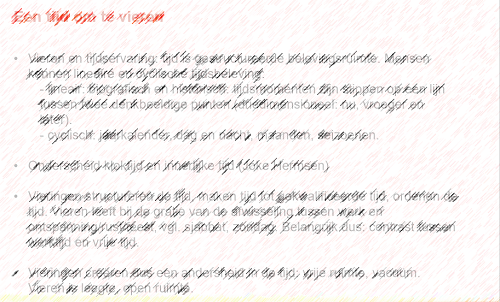 Een tijd om te vieren
Vieren en tijdservaring: tijd is geen belevingsruimte. Mensen
kennen lineaire en cyclische tijdsbeleving.
- lineair: biografisch en historisch: tijdsmomenten zijn stappen op een lijn
tussen vroeger en
later).
- cyclisch: jaarkalender, dag en nacht, maanden, seizoenen.
Onderscheid kloktijd en innerlijke tijd (Joke Hermsen)
Vieringen structureren de tijd, maken tijd tot gekwalificeerde tijd, ordenen de
tijd. Vieren leeft bij de gratie van de afwisseling tussen werk en
ontspanning/rust/feest, vgl. sjabbat, zondag. Belangrijk dus: contrast tussen
werktijd en vrije tijd.
Vieringen een andersheid in de tijd: vrije ruimte, vacuüm.
Vieren is leegte, open ruimte.